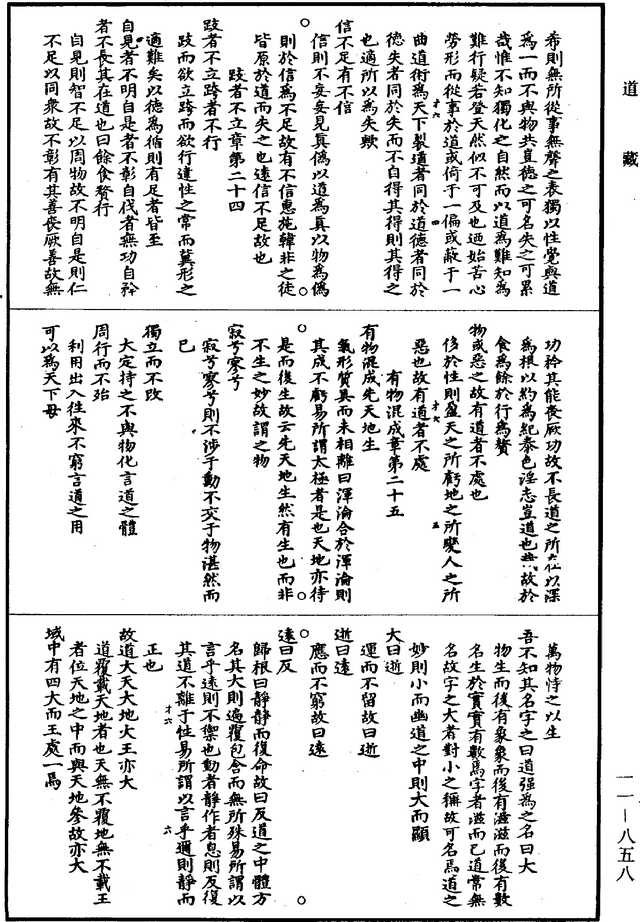 道藏
希則無所從事無聲之表獨以性覺與道
為一而不與物共豈德之可名失之可累
哉惟不知獨化之自然而以道為難知為
難行疑若登天然似不可及也迺始苦心
勞形而從事於道或倚于一偏或蔽于一
曲道術為天下裂道者同於道德者同於
德失者同於失而不自得其得則其得之
也適所以為失歟
信不足有不信
信則不妄妄見真偽以道為真以物為偽
則於信為不足故有不信惠施韓非之徒
皆原於道而失之也遠信不足故也
跂者不立章第二十四
跂者不立跨者不行
跂而欲立跨而欲行違性之常而冀形之
適難矣以德為循則有足者皆至
自見者不明自是者不彰自伐者無功自矜
者不長其在道也曰餘食贅行
自見則智不足以周物故不明自是則仁
不足以同衆故不彰有其善喪厥善故無
功矜其能喪厥功故不長道之所在以深
為根以約為紀泰色淫志豈道也哉故於
食為餘於行為贅
物或惡之故有道者不處也
侈於性則盈天之所虧地之所變人之所
惡也故有道者不處
有物混成章第二十五
有物混成先天地生
氣形質具而未相離曰渾淪合於渾淪則
其成不虧易所謂太極者是也天地亦待
是而後生故云先天地生然有生也而非
不生之妙故謂之物
寂兮寥兮
寂兮寥兮則不涉于動不交于物湛然而
已
獨立而不改
大定持之不與物化言道之體
周行而不殆
利用出入往來不窮言道之用
可以為天下母
萬物恃之以生
吾不知其名字之曰道強為之名曰大
物生而後有象象而後有滋滋而後有數
名生於實實有數焉字者滋而已道常無
名故字之大者對小之稱故可名焉道之
妙則小而幽道之中則大而顯
大曰逝
運而不留故曰逝
逝曰遠
應而不窮故曰遠
遠曰反
歸根曰靜靜而復命故曰反道之中體方
名其大則遍覆包含而無所殊易所謂以
言乎遠則不禦也動者靜作者息則反復
其道不離于性易所謂以言乎邇則靜而
正也
故道大天大地大王亦大
道覆載天地者也天無不覆地無不載王
者位天地之中而與天地參故亦大
域中有四大而王處一焉
一一—八五八